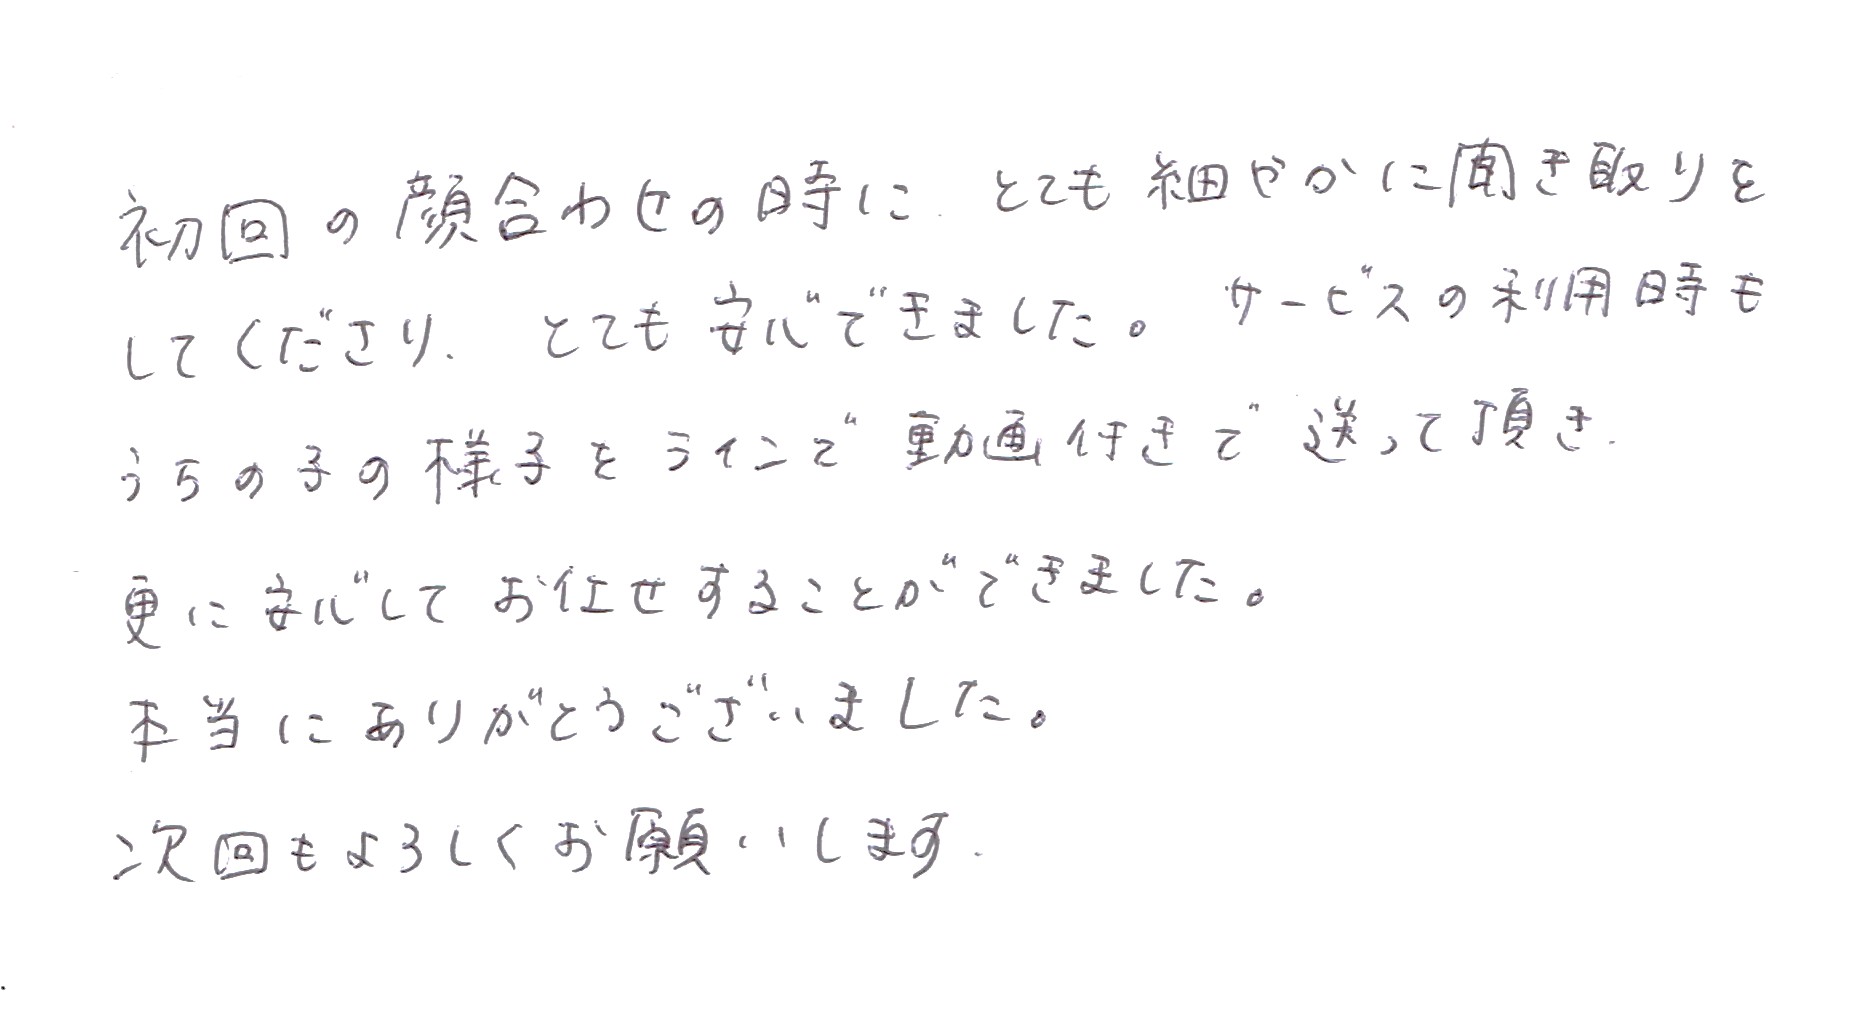 初回の顔合わせの時に、とても細やかに聞き取りを
してくださり、とても安心できました。サービスの利用時も
うちの子の様子をラインで動画付きで送って頂き、
更に安心してお任せすることができました。
本当にありがとうございました。
次回もよろしくお願いします。